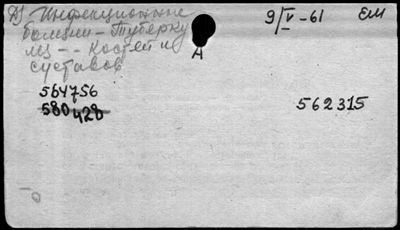 Д) Инфекционные 9/V-61 ЕМ
болезни - Туберку
лез - - Костей и
суставов
А
564756
580428 562315